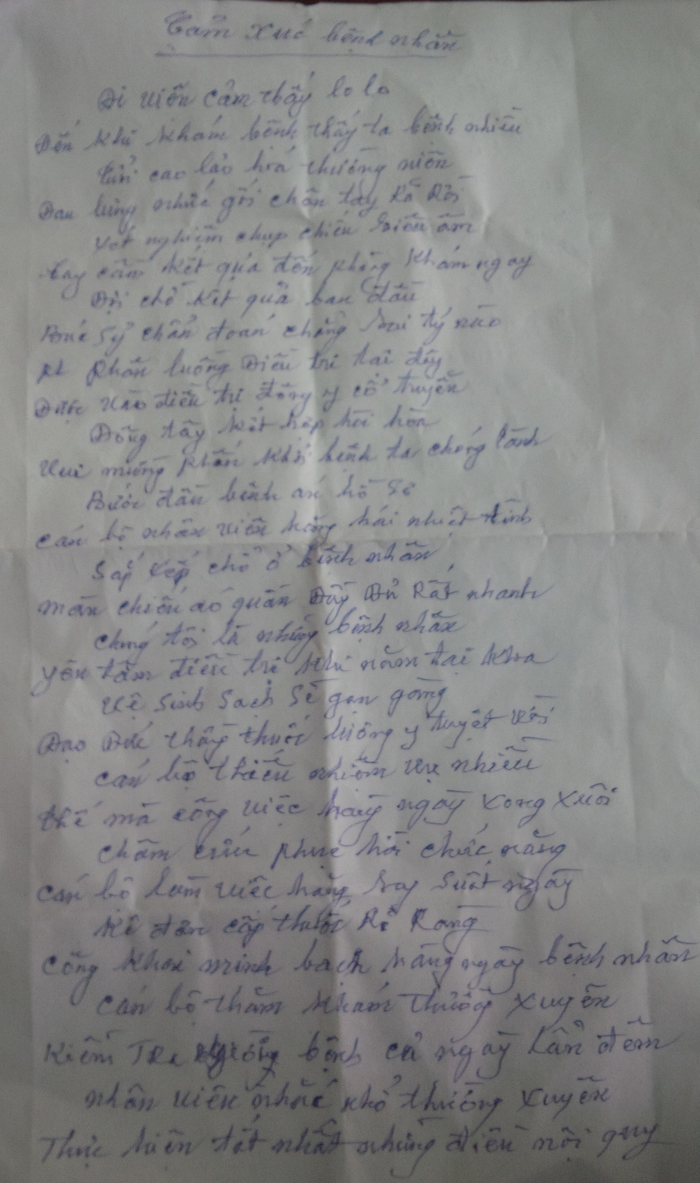 Cảm xúc bệnh nhân
Đi viện cảm thấy lo lo
Đến khi khám bệnh thấy ta bệnh nhiều
Tuổi cao lảo hoá thường niên
Đau lưng nhức gối chân tay Rã Rời
Xét nghiệm chụp chiếu siêu âm
Tay cầm kết quả đến phòng khám ngay
Đợi chờ kết quả ban đầu
Bác sỹ chẩn đoán chẳng sai tý nào
Phân luồng Điều trị tại đây
Được vào điều trị đông y cổ truyền
Đông tây kết hợp hài hòa
Vui mừng phấn khởi bệnh ta chóng lành
Bước đầu bệnh án hồ sơ
cán bộ nhân viên hăng hái nhiệt tình
Sắp xếp chổ ở bệnh nhân
màn chiếu áo quần Đầy Đủ Rất nhanh
chúng tôi là những bệnh nhân
yên tâm điều trị khi nằm tại khoa
Vệ sinh sạch sẽ gọn gàng
Đạo Đức thầy thuốc lương y tuyệt vời
cán bộ thiếu nhiệm vụ nhiều
thế mà công việc hàng ngày xong xuôi
châm cứu phục hồi chức năng
cán bộ làm việc hăng say suốt ngày
kê đơn cấp thuốc Rõ Ràng
công khai minh bạch hàng ngày bệnh nhân
cán bộ thăm khám thường xuyên
Kiểm Tra giường bệnh cả ngày lẫn đêm
nhân viên nhắc nhở thường xuyên
Thực hiện tốt nhất những điều nội quy